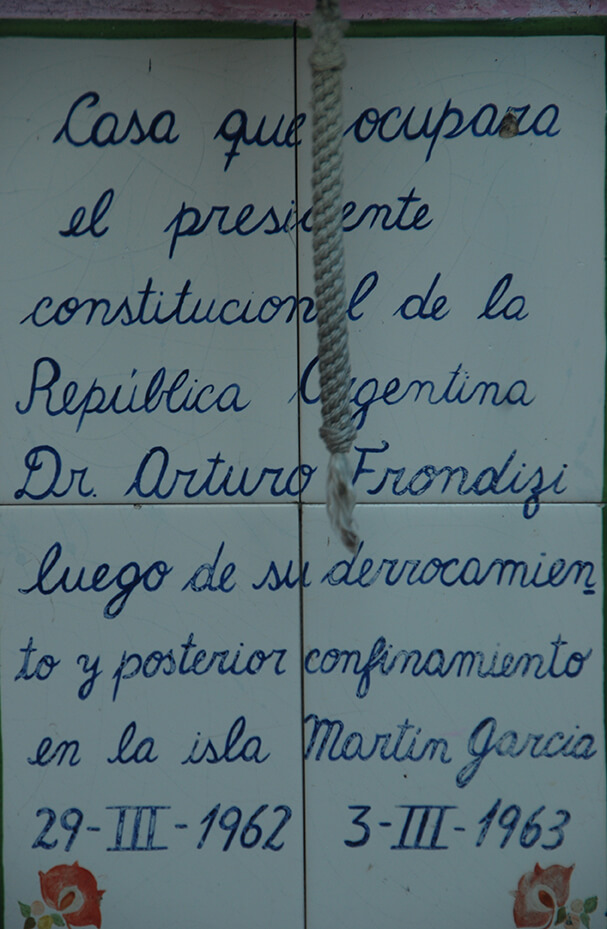 Casa que ocupara
el presidente
constitucional de la
República Argentina
Dr. Arturo Frondizi
luego de su derrocamien-
to y posterior confinamiento
en la isla Martín Garcia
29-III-1962 3-III-1963